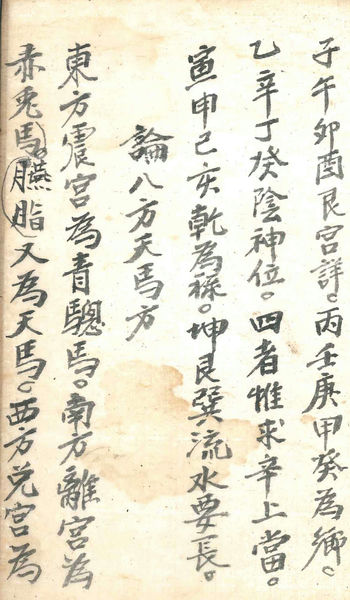 子午卯酉艮宮詳。丙壬庚甲癸為鄉。
乙辛丁癸陰神位。四者惟求辛上當。
寅申巳亥乾為祿。坤艮巽流水要長。
論八方天馬方
東方震宮為青驄馬。南方離宮為
赤兎馬。臙脂又為天馬。西方兌宮為